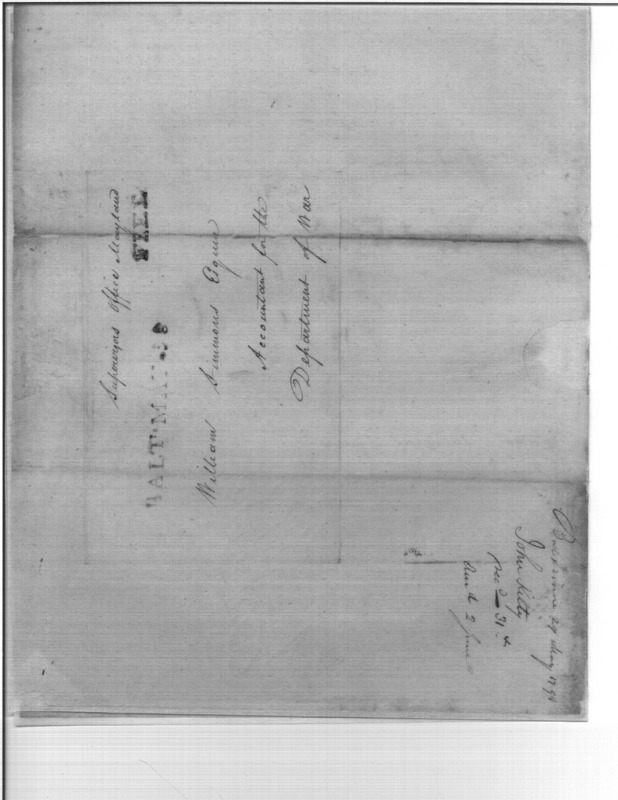 Supervisors Office Maryland
FREE
BALTR MAY 28
William Simmons Esquire
Accountant for the
Department of War
Baltimore 29 May 1798
John Kilty
rec'd 31st
Ans'd 2 June